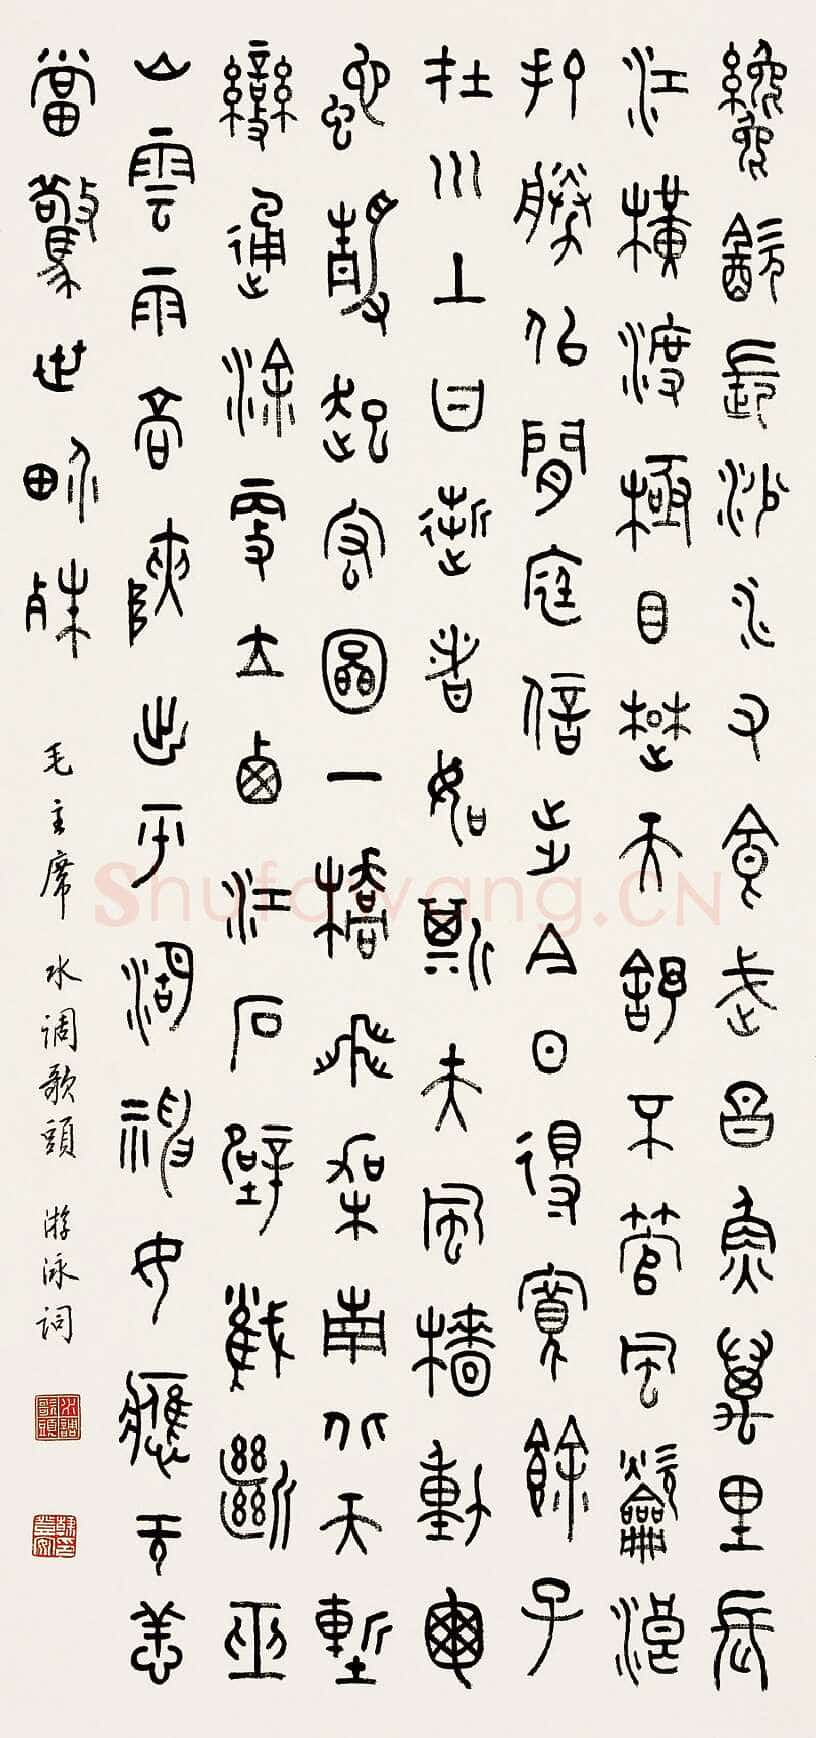 纔飲長沙水又食武昌魚萬里長
江橫渡極目楚天舒不管風龡浪
打勝佀閒庭信步今日得寬餘子
在川上曰逝者如斯夫風檣動龜
蛇靜起宏圖一橋飛架南北天塹
變通涂更立西江石壁截斷巫
山雲雨高峽出平湖神女應无恙
當驚世界殊
毛主席 水调歌頭 游泳词
水調歌頭
Shufawang.CN